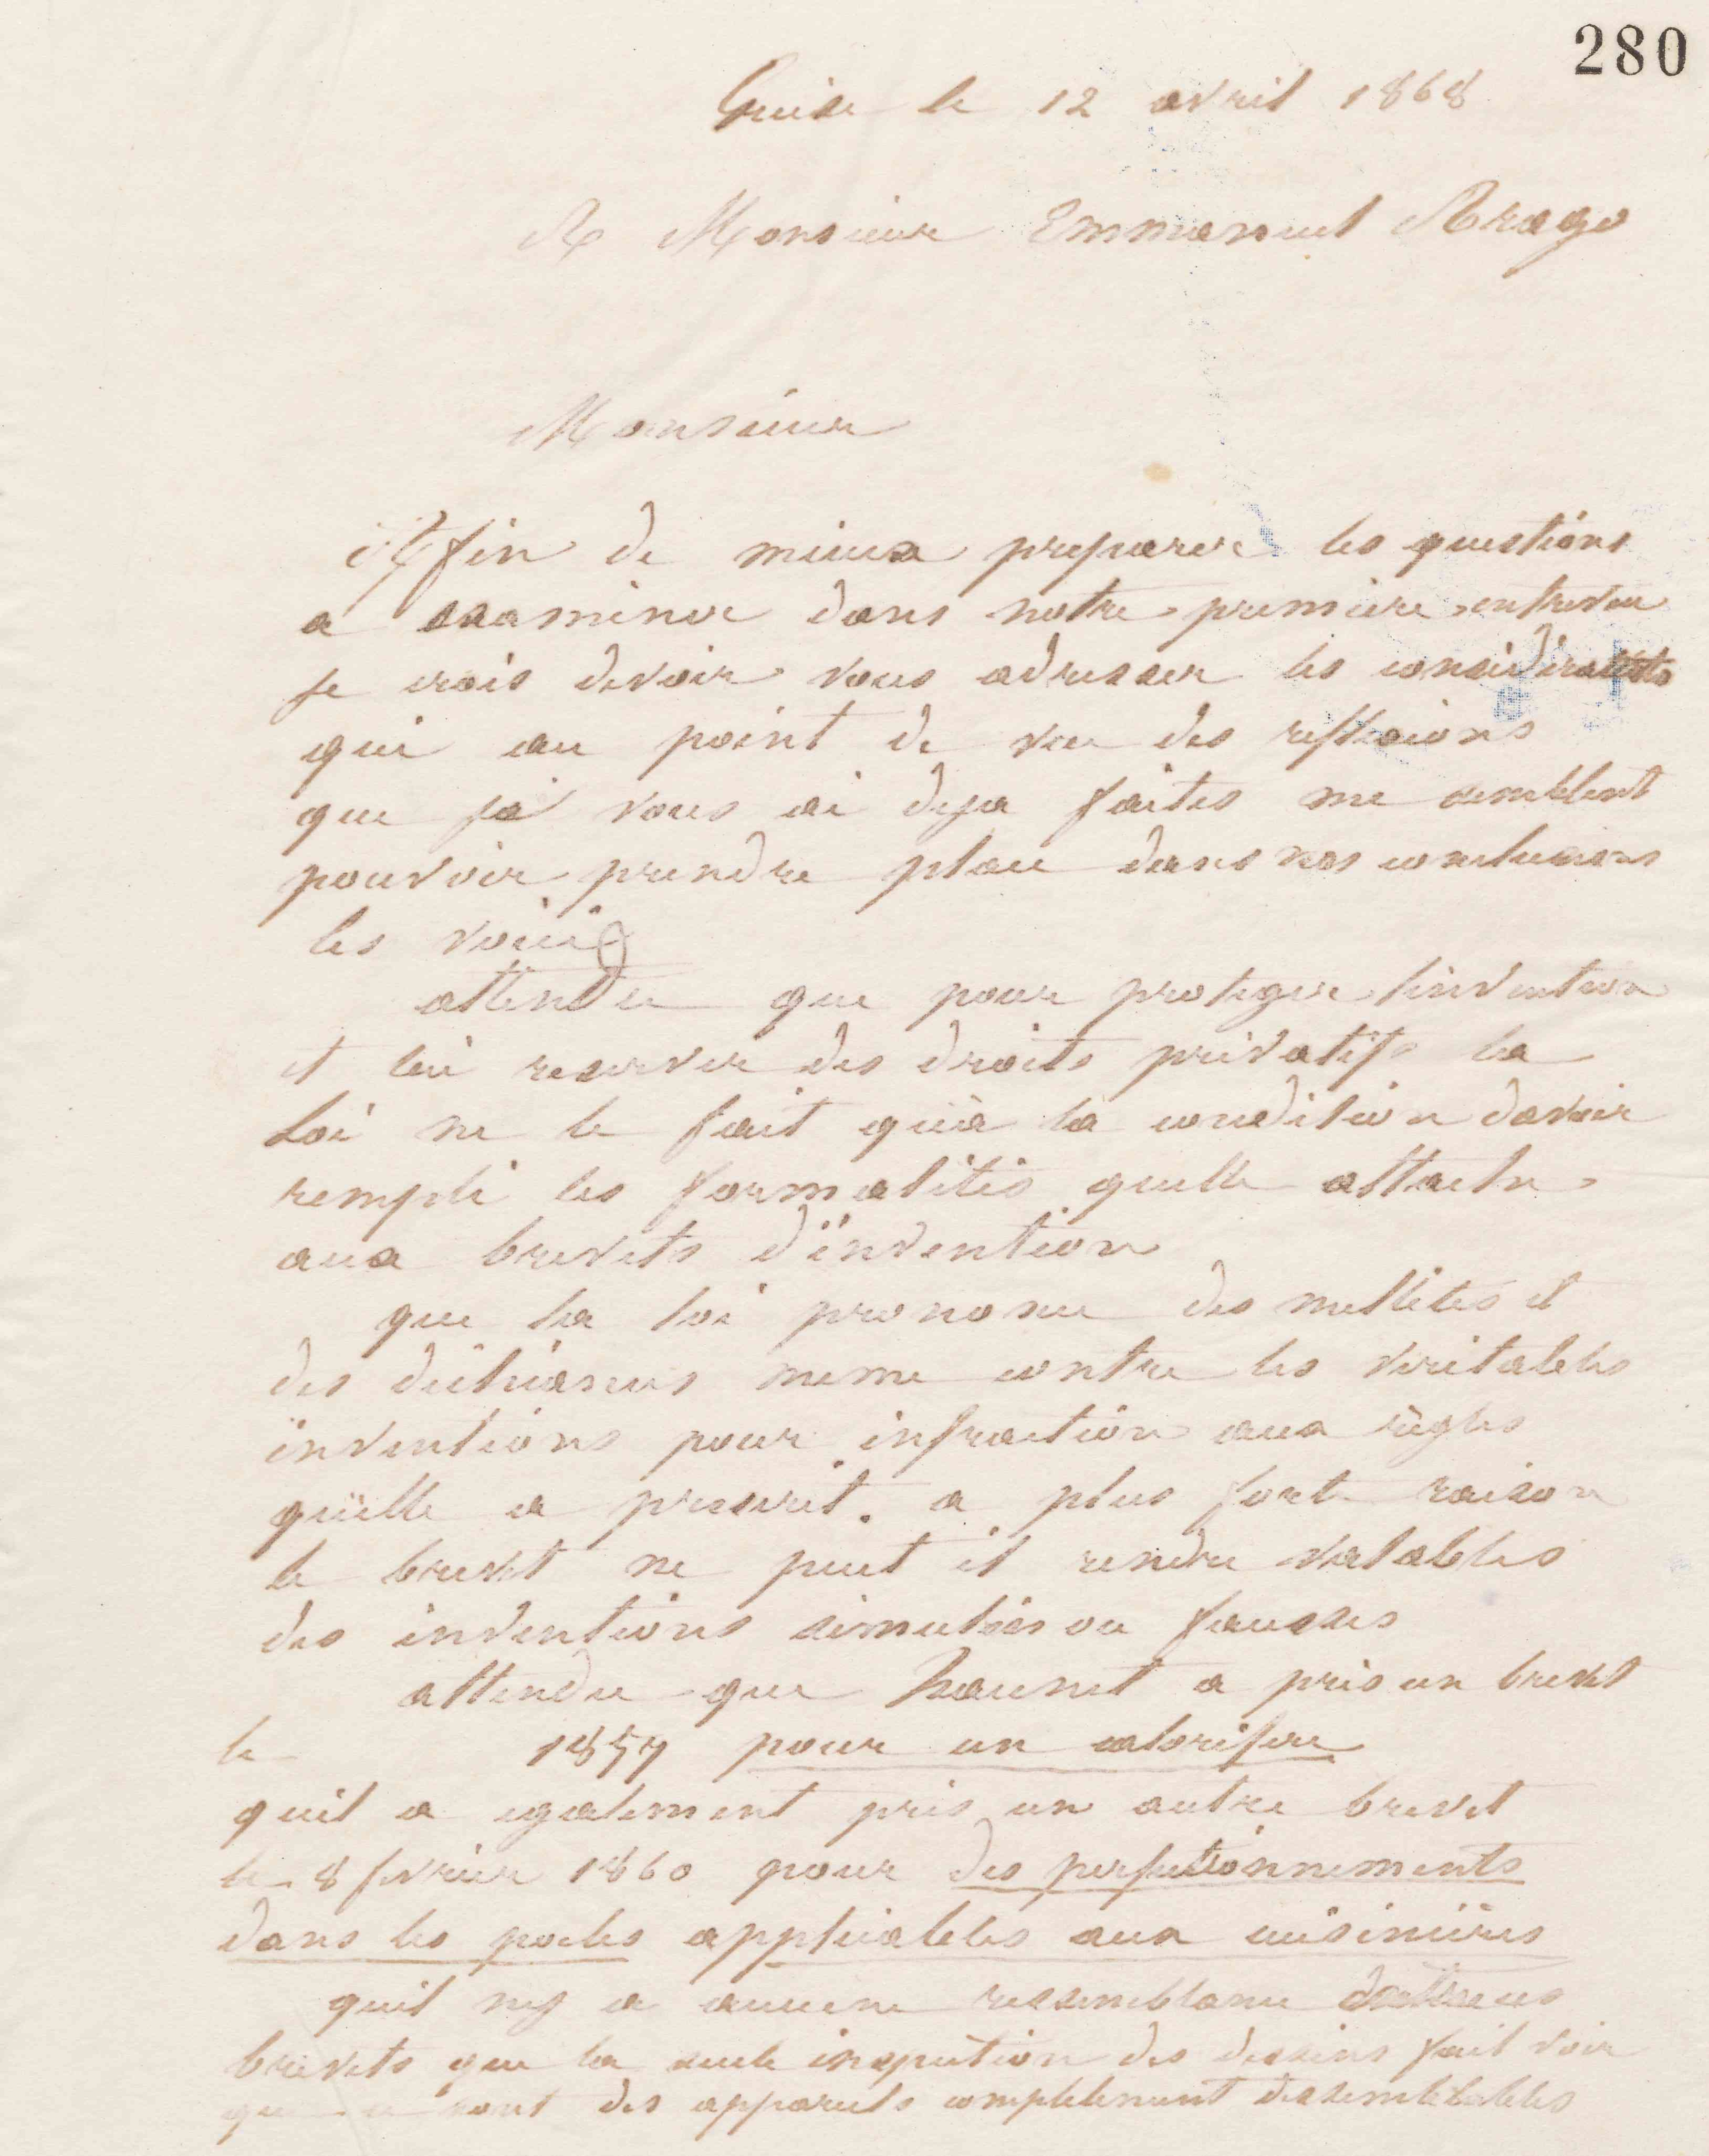 280
Guise le 12 avril 1868
A Monsieur Emmanuel Arago
Monsieur
Affin de mieux preparer les questions
a examiner dans notre premiere entrevue
je crois devoir vous adresser les considérants
qui au point de vue des reflexions
que je vous ai deja faites me semblent
pouvoir prendre place dans vos conclusions
les voici
attendu que pour proteger l'invention
et lui reserver des droits privatifs la
Loi ne le fait qu'à la condition davoir
rempli les formalités quelle attache
aux brevets d'invention
que la loi prononce des nullités et
des dechéances meme contre les veritables
inventions pour infraction aux règles
qu'elle a prescrit. a plus forte raison
le brevet ne peut il rendre valables
des inventions simulées ou fausses
attendu que a pris un brevet
le 1857 pour un calorifere
quil a egalement pris un autre brevet
le 8 fevrier 1860 pour des perfectionnements
dans les poeles applicables aux cuisinières
quil ny a aucune ressemblance
brevets que la seule inspection des dessins fait voir
que ce sont des appareils completement dessemblables